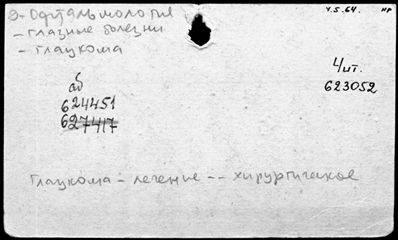 Э-Офтальмология
У.5.64. НР
- глазные болезни
- глаукома
Чит.
аб
623052
624451
627417
Глаукома - лечение -- хирургическое